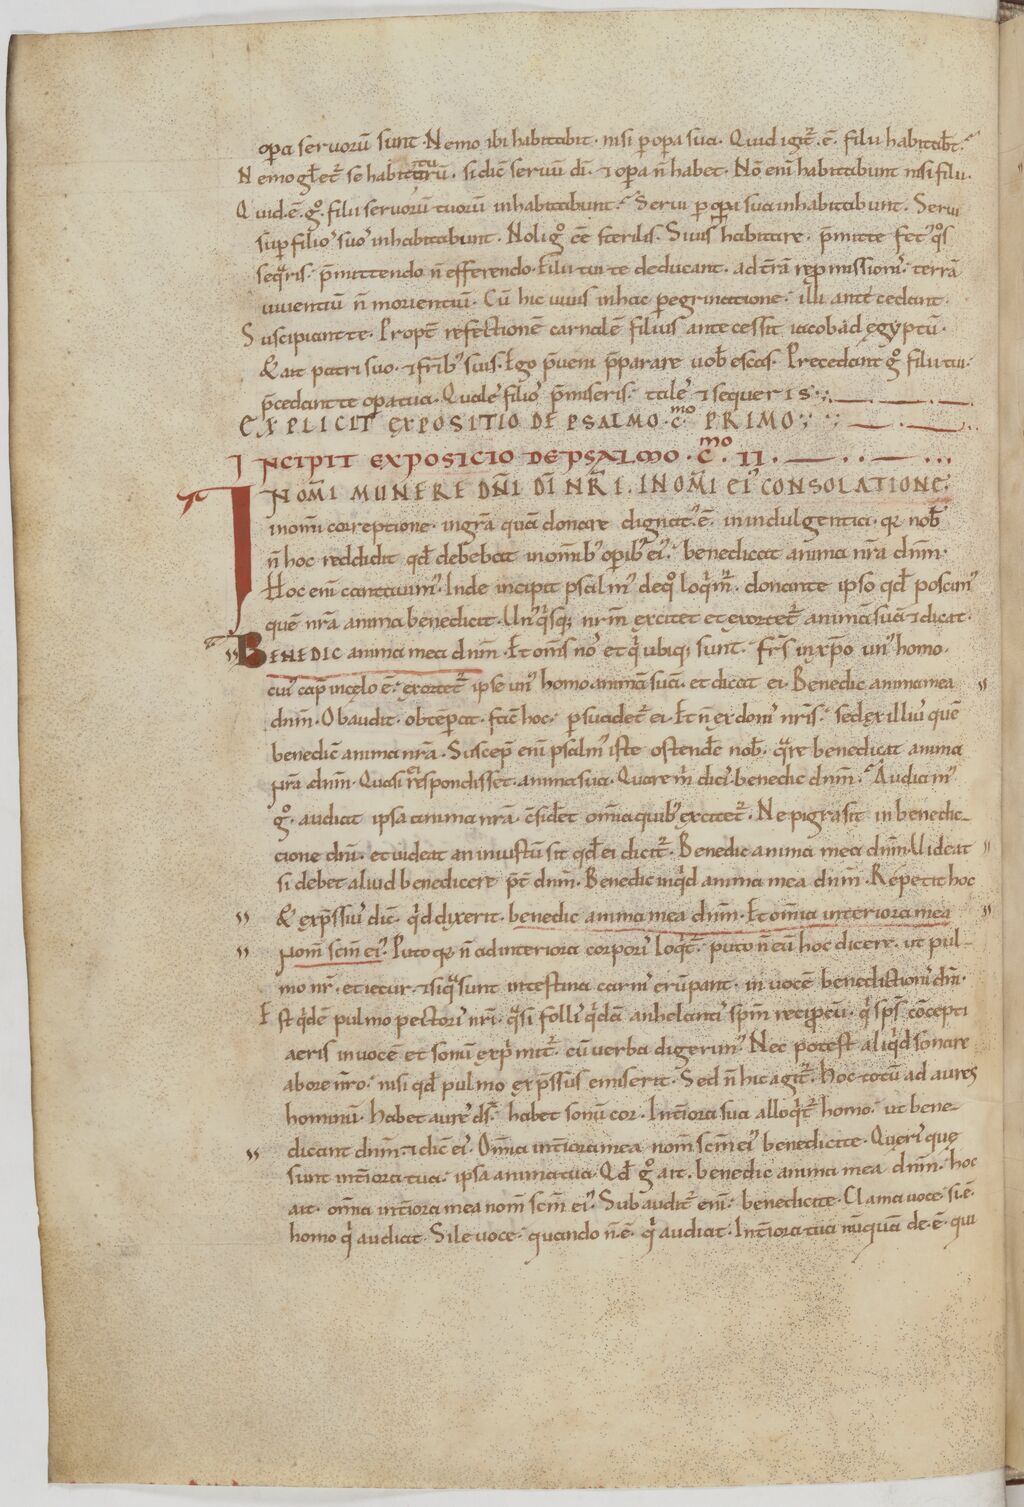 opera seruorũ sunt. Nemo ibi habitabit. nisi p opa sua. Quid igit̃. ẽ. filii habitabt̃.
Nemo gl̃et̃ se habitaturũ. si dicẽ seruũ di. & opera ñ habet. Nõ eni habitabunt nisi filii.
Quid. ẽ. gͦ. filii seruorũ tuorũ inhabitabunt. Serui p opa sua inhabitabunt. Serui
sup filios suos inhabitabunt. Noli gͦ ẽe sterilis. Si uis habitare. p̃mitte fet᷒ qͦs
seq̃ris. p̃mittendo ñ efferendo. Filii tui te deducant. ad t̃rã repmissionis. terrã
uiuentiũ ñ morientiũ. Cũ hic uiuis in hac peregrinatione. illi antecedant.
Suscipiant te. Propt̃ refectionẽ carnalẽ filius antecessit iacob ad ęgyptũ.
& ait patri suo. & frib᷒ suis. Ego p̃ueni p̃parare uob̃ escas. Precedant gͦ filii tui.
p̃cedant te opera tua. Quales filios p̃miseris. tales & sequeris
EXPLICIT EXPOSITIO DE PSALMO .C̃.ᵐᵒ PRIMO
INCIPIT EXPOSICIO DE PSALMO .C̃.ᵐᵒ II.
IN OM̃I MUNERE DÑI DĨ NR̃I. IN OM̃I EI᷒ CONSOLATIONE.
in om̃i correptione. in gr̃a quã donare dignat᷒. ẽ. in indulgentia. q̃ nob̃
ñ hoc reddidit qd̃ debebat in om̃ib᷒ operib᷒ ei᷒. benedicat anima nr̃a dñm.
Hoc eni cantauim᷒. Inde incipit psalm᷒ de quͦ loq̃m̃. donante ipso qd̃ poscim᷒
quẽ nr̃a anima benedicit. Un᷒ q̃sq; nr̃m excitet et exortet̃ animã suã & dicat.
BENEDIC anima mea dñm. Et om̃s nos et q̃ ubiq; sunt. fr̃s in xp̃o un᷒ homo.
cui᷒ cap̃ in cęlo ẽ. exortet̃ ipse un᷒ homo animã suã. et dicat ei. Benedic anima mea
dñm. Obaudit. obtẽperat. facit hoc. psuadet̃ ei. Et ñ ex donis nr̃is. sed ex illius quẽ
benedic̃ anima nr̃a. Suscep̃ eni psalm᷒ iste ostendẽ nob̃. q̃re benedicat anima
nr̃a dñm. Quasi respondisset. anima sua. Quare m̃ dicis. benedic dñm. Audiam᷒
gͦ. audiat ipsa anima nr̃a. c̃sidet̃ om̃ia quib᷒ excitet̃. Ne pigra sit in benedic-
cione dñi. et uideat an iniustũ sit qd̃ ei dicit̃. Benedic anima mea dñm. Uideat
si debet aliud benedicere p̃t dñm. Benedic inq̃d anima mea dñm. Repetit hoc
& exp̃ssius dic̃. q̃d dixerit. benedic anima mea dñm. Et om̃ia interiora mea
nom̃ scm̃ ei᷒. Puto q̃ ñ ad interiora corporis loq̃t̃. puto ñ eũ hoc dicere. ut pul-
mo nr̃. et iecur. & siq̃ sunt intestina carnis erũpant. in uocẽ benedictionis dñi.
Est q̃dẽ pulmo pectoris nr̃i. q̃si follis q̃dã anhelantis sp̃m reciprocũ. q̃ sp̃s cõcepti
aeris in uocẽ et sonũ exp̃mit̃. cũ uerba digerim᷒. Nec potest aliq̃d sonare
ab ore nr̃o. nisi qd̃ pulmo exp̃ssus emiserit. Sed ñ hic agit̃. Hoc totũ ad aures
hominũ. Habet aures ds̃. habet sonũ cor. Int̃iora sua alloq̃t̃ homo. ut bene-
dicant dñm. & dic̃ eis. Om̃ia int̃iora mea nom̃ scm̃ ei᷒ benedicite. Queris quę
sunt int̃iora tua. ipsa anima tua. Qd̃ gͦ ait. benedic anima mea dñm. hoc
ait. om̃ia int̃iora mea nom̃ scm̃ ei᷒. Subaudit̃ eni. benedicite. Clama uoce si. ẽ.
homo q̃ audiat. Sile uoce. quando ñ. ẽ. q̃ audiat. Int̃iora tua nũquã de. ẽ. qui